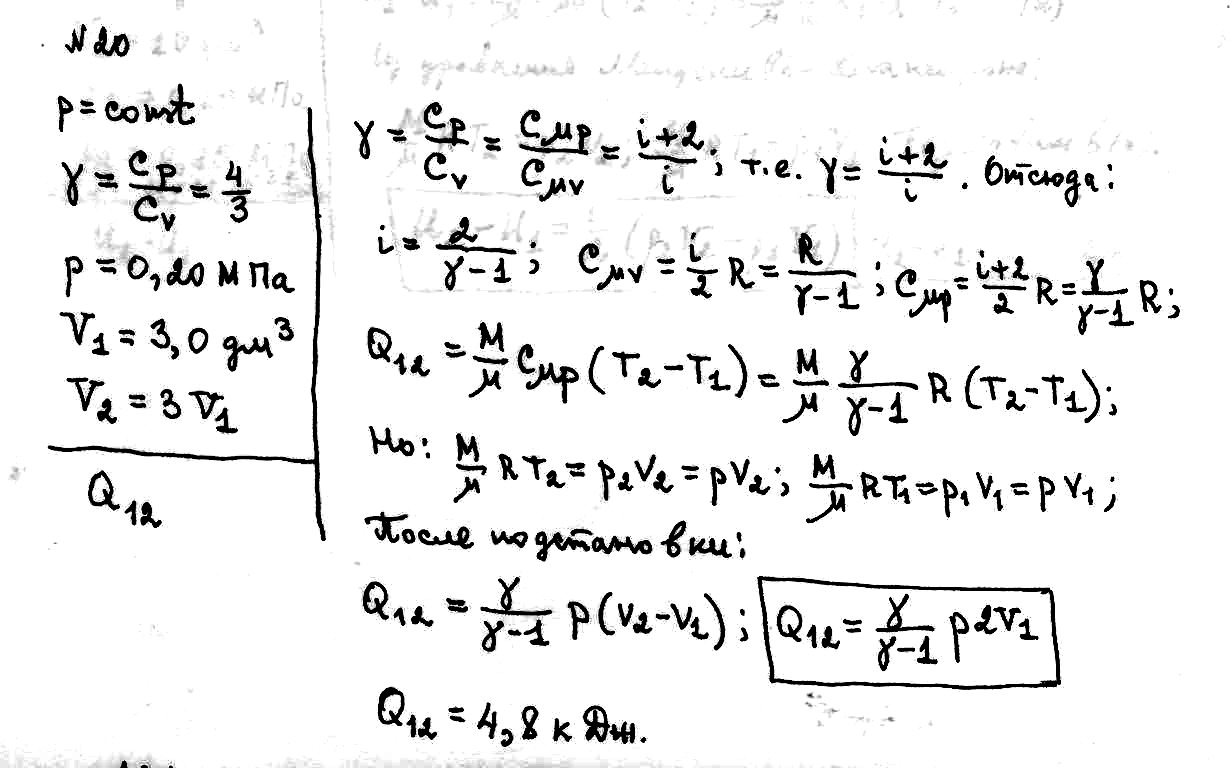 N 20
p = const
γ = Cp/Cv = 4/3
p = 0,20 МПа
V₁ = 3,0 дм³
V₂ = 3V₁
Q₁₂
γ = Cp/Cv = Cμp/Cμv = (i+2)/i; т.е. γ = (i+2)/i. Отсюда:
i = 2/(γ-1); Cμv = i/2 R = R/(γ-1); Cμp = (i+2)/2 R = γ/(γ-1) R;
Q₁₂ = M/μ Cμp (T₂-T₁) = M/μ γ/(γ-1) R (T₂-T₁);
Но: M/μ RT₂ = p₂V₂ = pV₂; M/μ RT₁ = p₁V₁ = pV₁;
После подстановки:
Q₁₂ = γ/(γ-1) p(V₂-V₁); Q₁₂ = γ/(γ-1) p2V₁
Q₁₂ = 4,8 кДж.